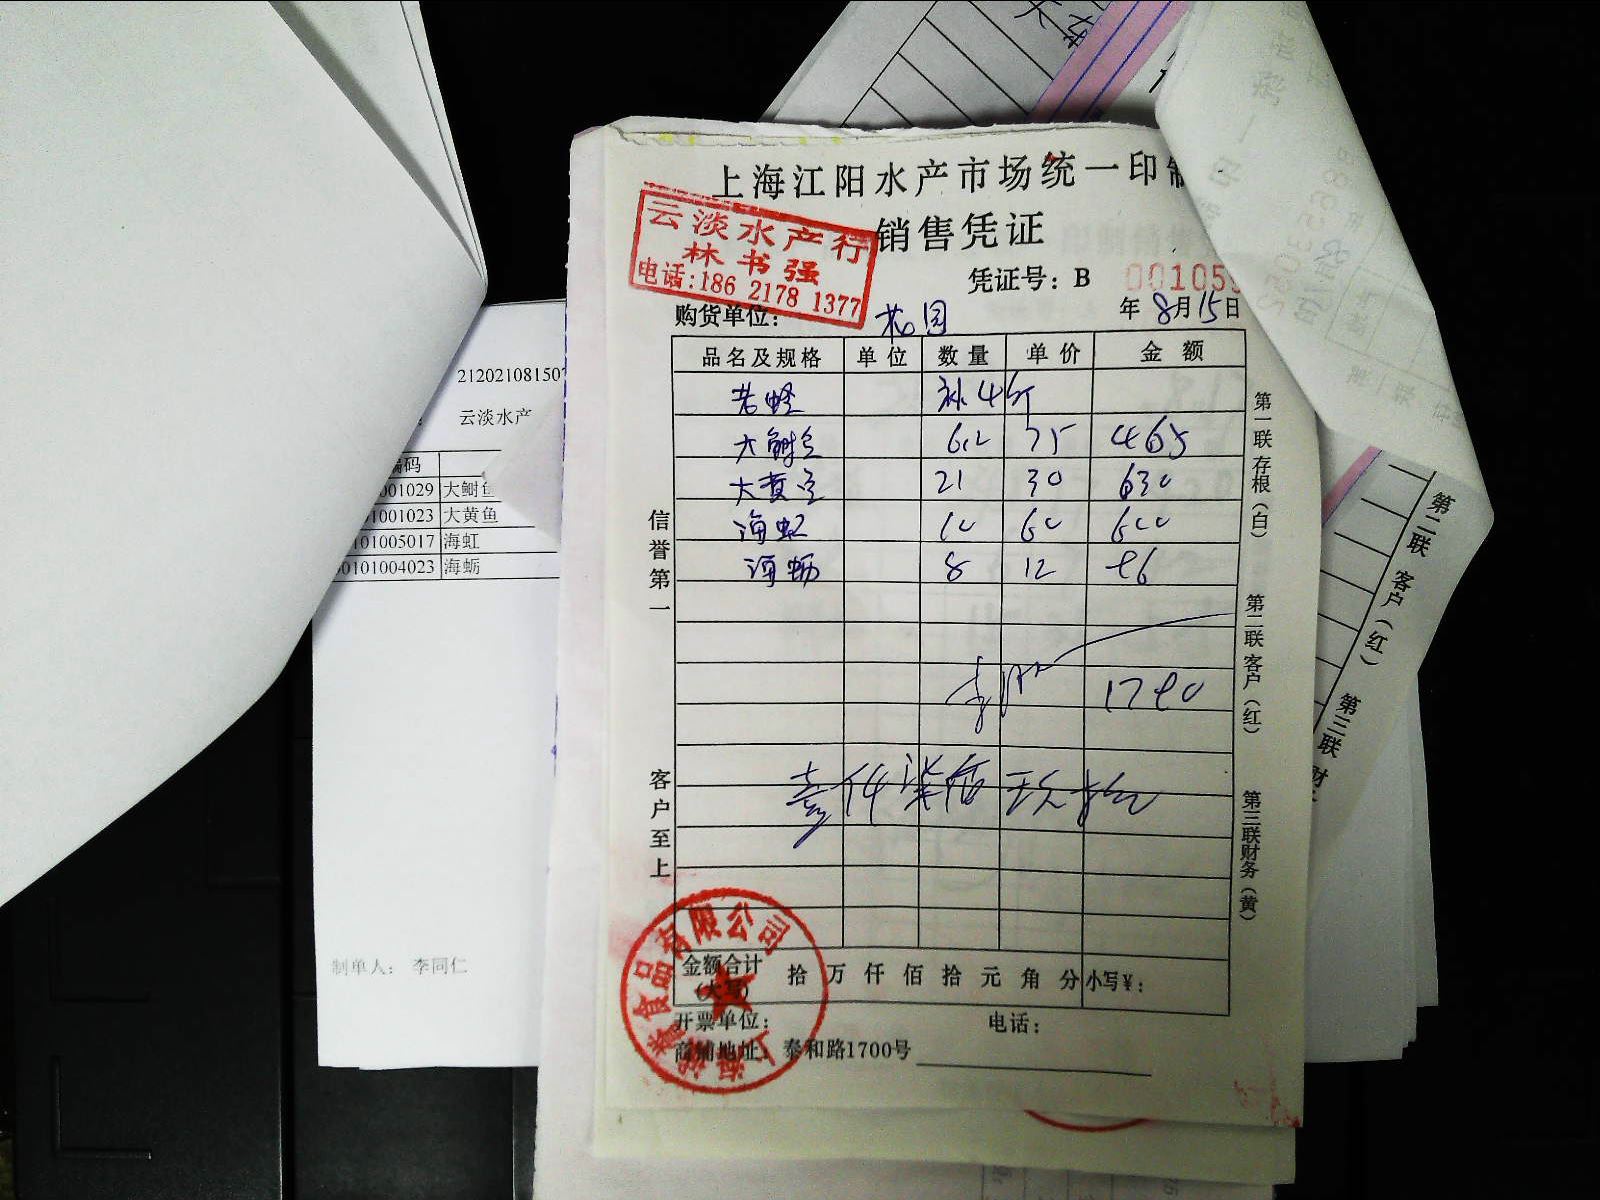 上海江阳水产市场统一印制
销售凭证
云淡水产行
林书强
电话:186 2178 1377
凭证号：B 001055
购货单位：
年 8月15日
品名及规格 单位 数量 单价 金额
老蛏 补4斤
大鲥鱼 6.2 75 465
大黄鱼 21 30 630
海虹 10 60 600
海蛎 8 12 96
1790
壹仟柒佰玖拾
金额合计 (大写) 拾 万 仟 佰 拾 元 角 分 小写¥：
开票单位： 电话：
商铺地址： 泰和路1700号
信誉第一
客户至上
第一联存根（白）
第二联客户（红）
第三联财务（黄）
食品有限公司
上海
21202108150
云淡水产
编码
001029 大鲥鱼
001023 大黄鱼
101005017 海虹
0101004023 海蛎
制单人： 李同仁
第二联 客户（红）
第三联 财